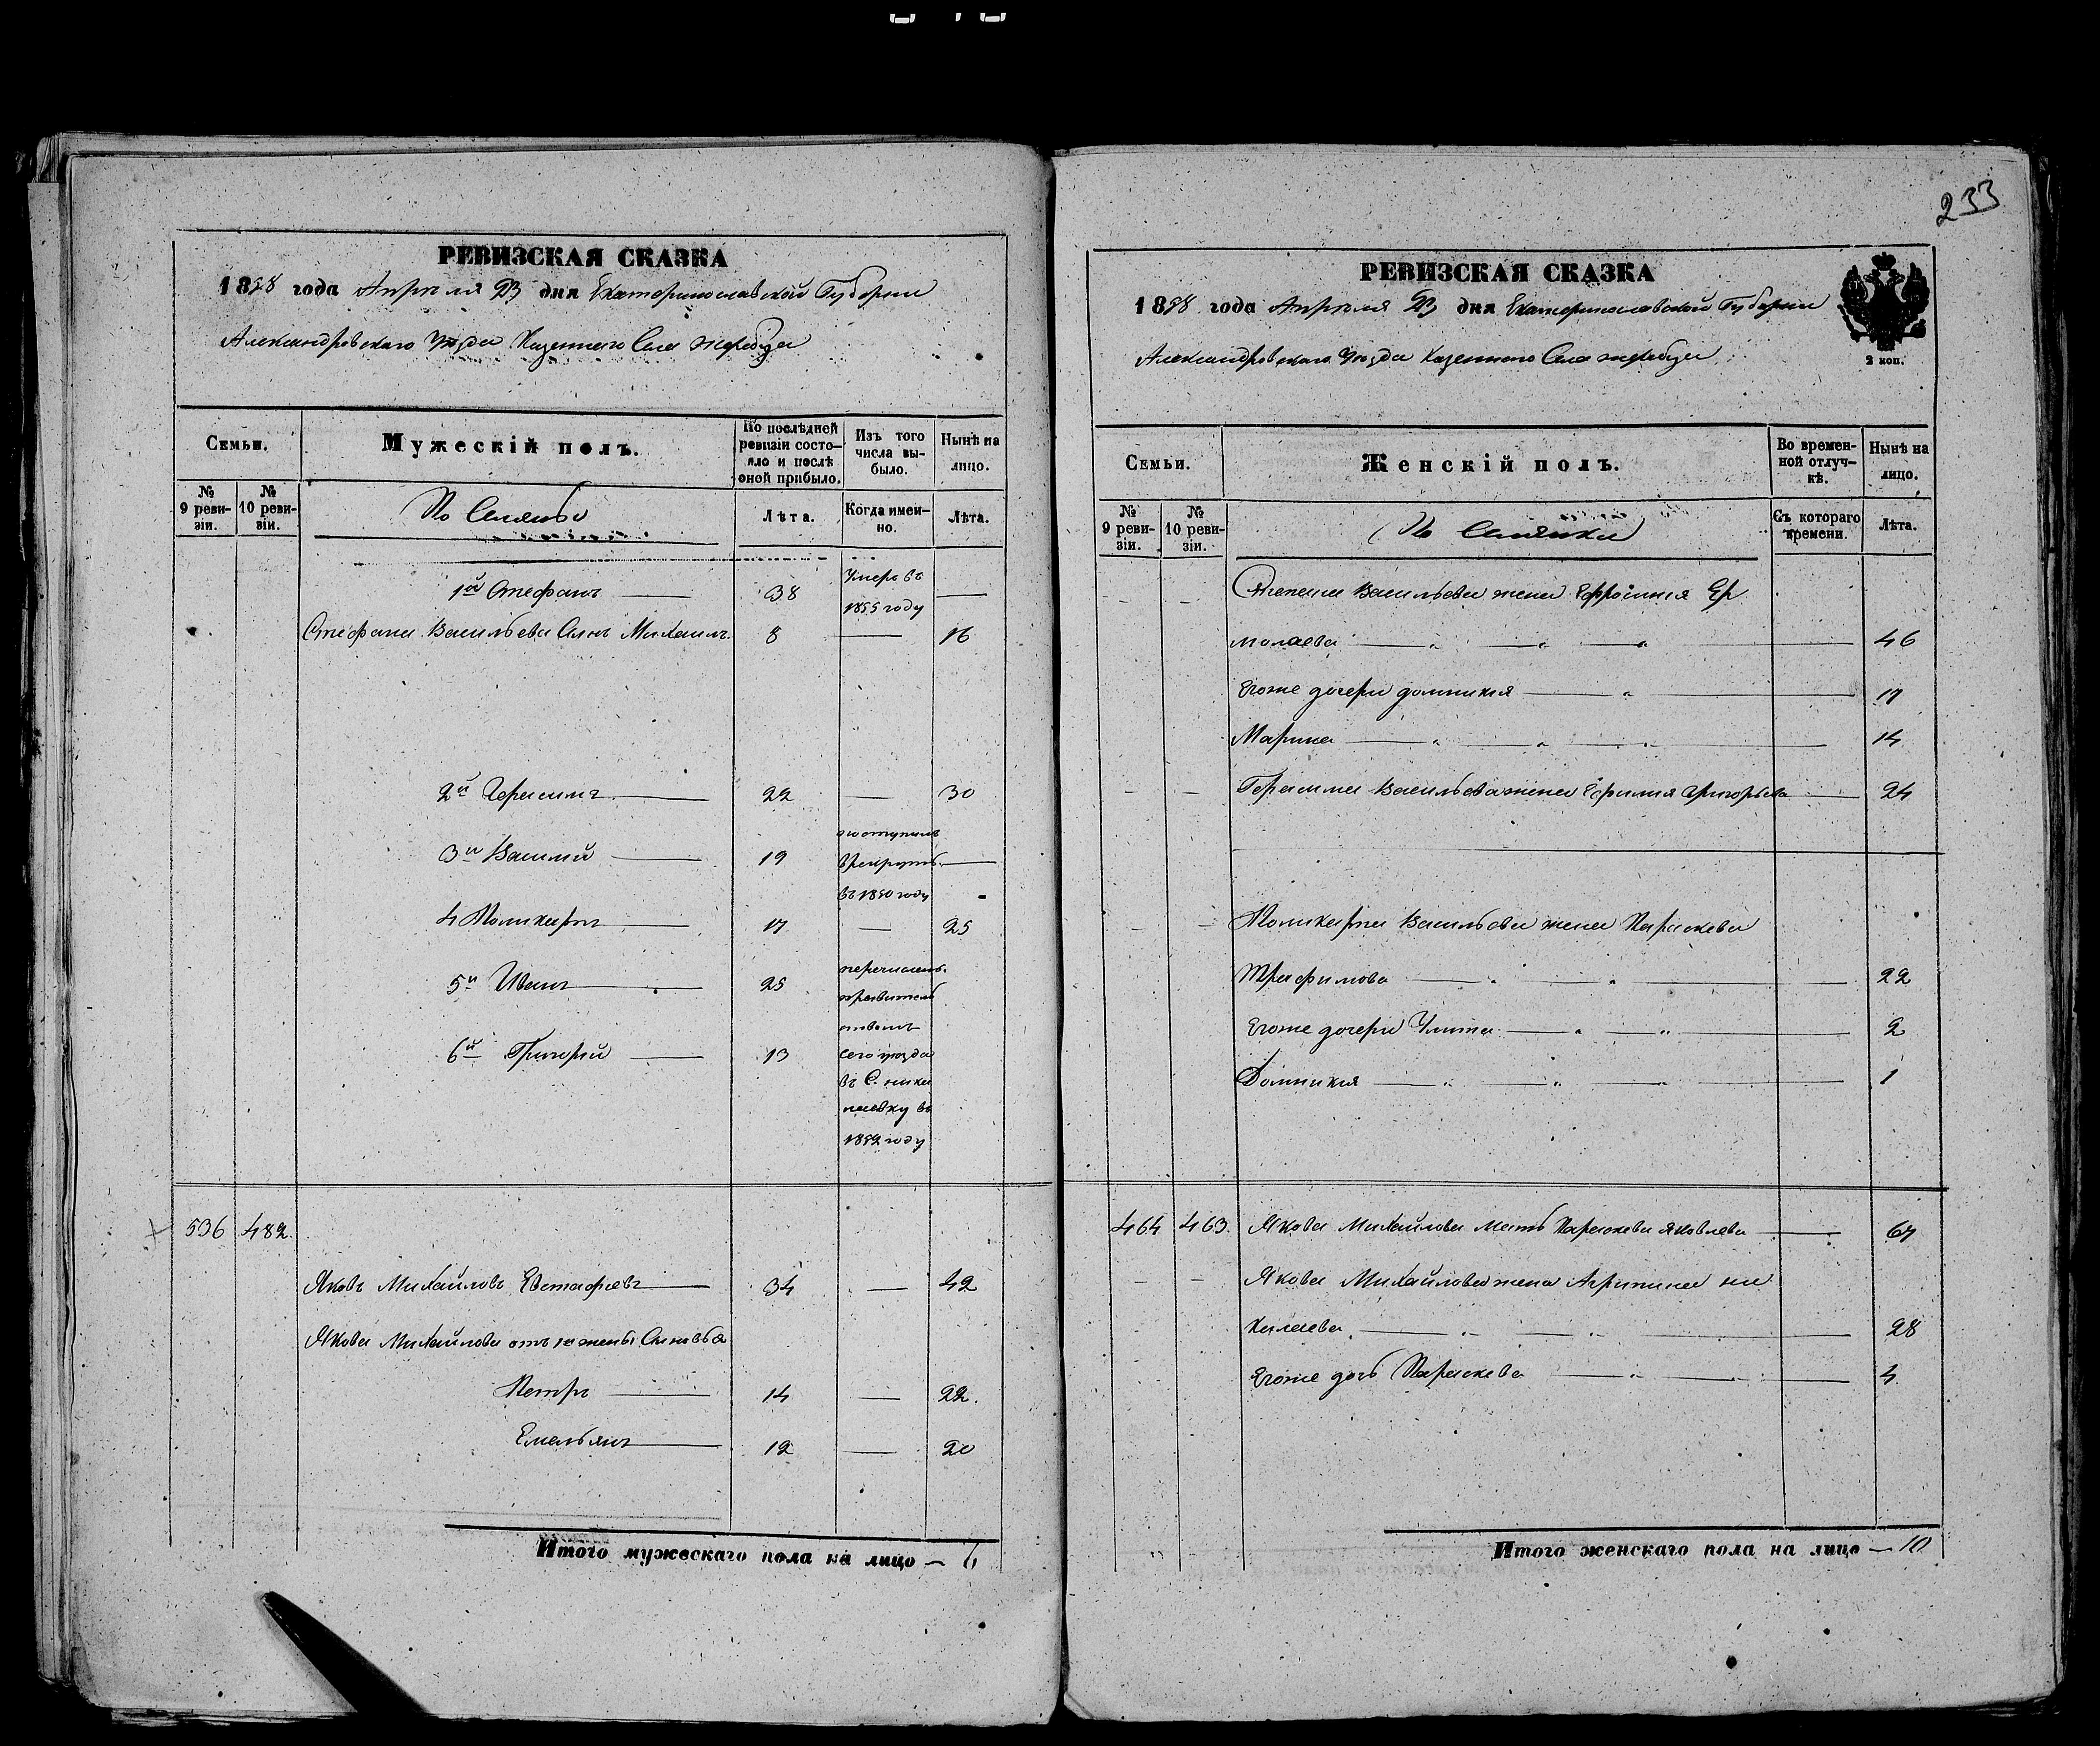 233
РЕВИЗСКАЯ СКАЗКА
1858 года Апреля 23 дня Екатеринославской Губернии
Александровскаго Уезда Казеннаго Села Жеребца
Семьи.
Мужескій полъ.
По послѣдней ревизіи состояло и послѣ оной прибыло.
Изъ того числа выбыло.
Нынѣ на лицо.
№ 9 ревизіи.
№ 10 ревизіи.
Лѣта.
Когда именно.
Лѣта.
1й Стефанъ 38 Умеръ въ 1855 году
Стефана Васильева Сынъ Михаилъ 8 16
2й Герасимъ 22 30
3й Василий 19 въ 1850 году
4 Поликарпъ 17 25
5й Иванъ 25
6й Григорий 13 сего уезда
въ С.
въ
1852 году
536 482.
Яковъ Михайловъ Евстафьевъ 34 42
Якова Михайлова отъ 1й жены Сыновья
Петръ 14 22.
Емельянъ 12 20
Итого мужескаго пола на лицо — 6
РЕВИЗСКАЯ СКАЗКА
1858 года Апреля 23 дня Екатеринославской Губернии
Александровскаго Уезда Казеннаго Села Жеребца
2 коп.
Семьи.
Женскій полъ.
Во временной отлучкѣ.
Нынѣ на лицо.
№ 9 ревизіи.
№ 10 ревизіи.
Съ котораго времени.
Лѣта.
Степана Васильева жена Ефросиния Ер
молаева 46
Егоже дочери Домникия 17
Марина 14
Герасима Васильева жена Ефимия Григорьева 24
Поликарпа Васильева жена Параскева
Трафимова 22
Егоже дочери Улита 2
Домникия 1
464 463. Якова Михайлова мать Параскева Яковлева 67
Якова Михайлова жена Агрипина Ни
калаева 28
Егоже дочь Параскева 4.
Итого женскаго пола на лицо — 10